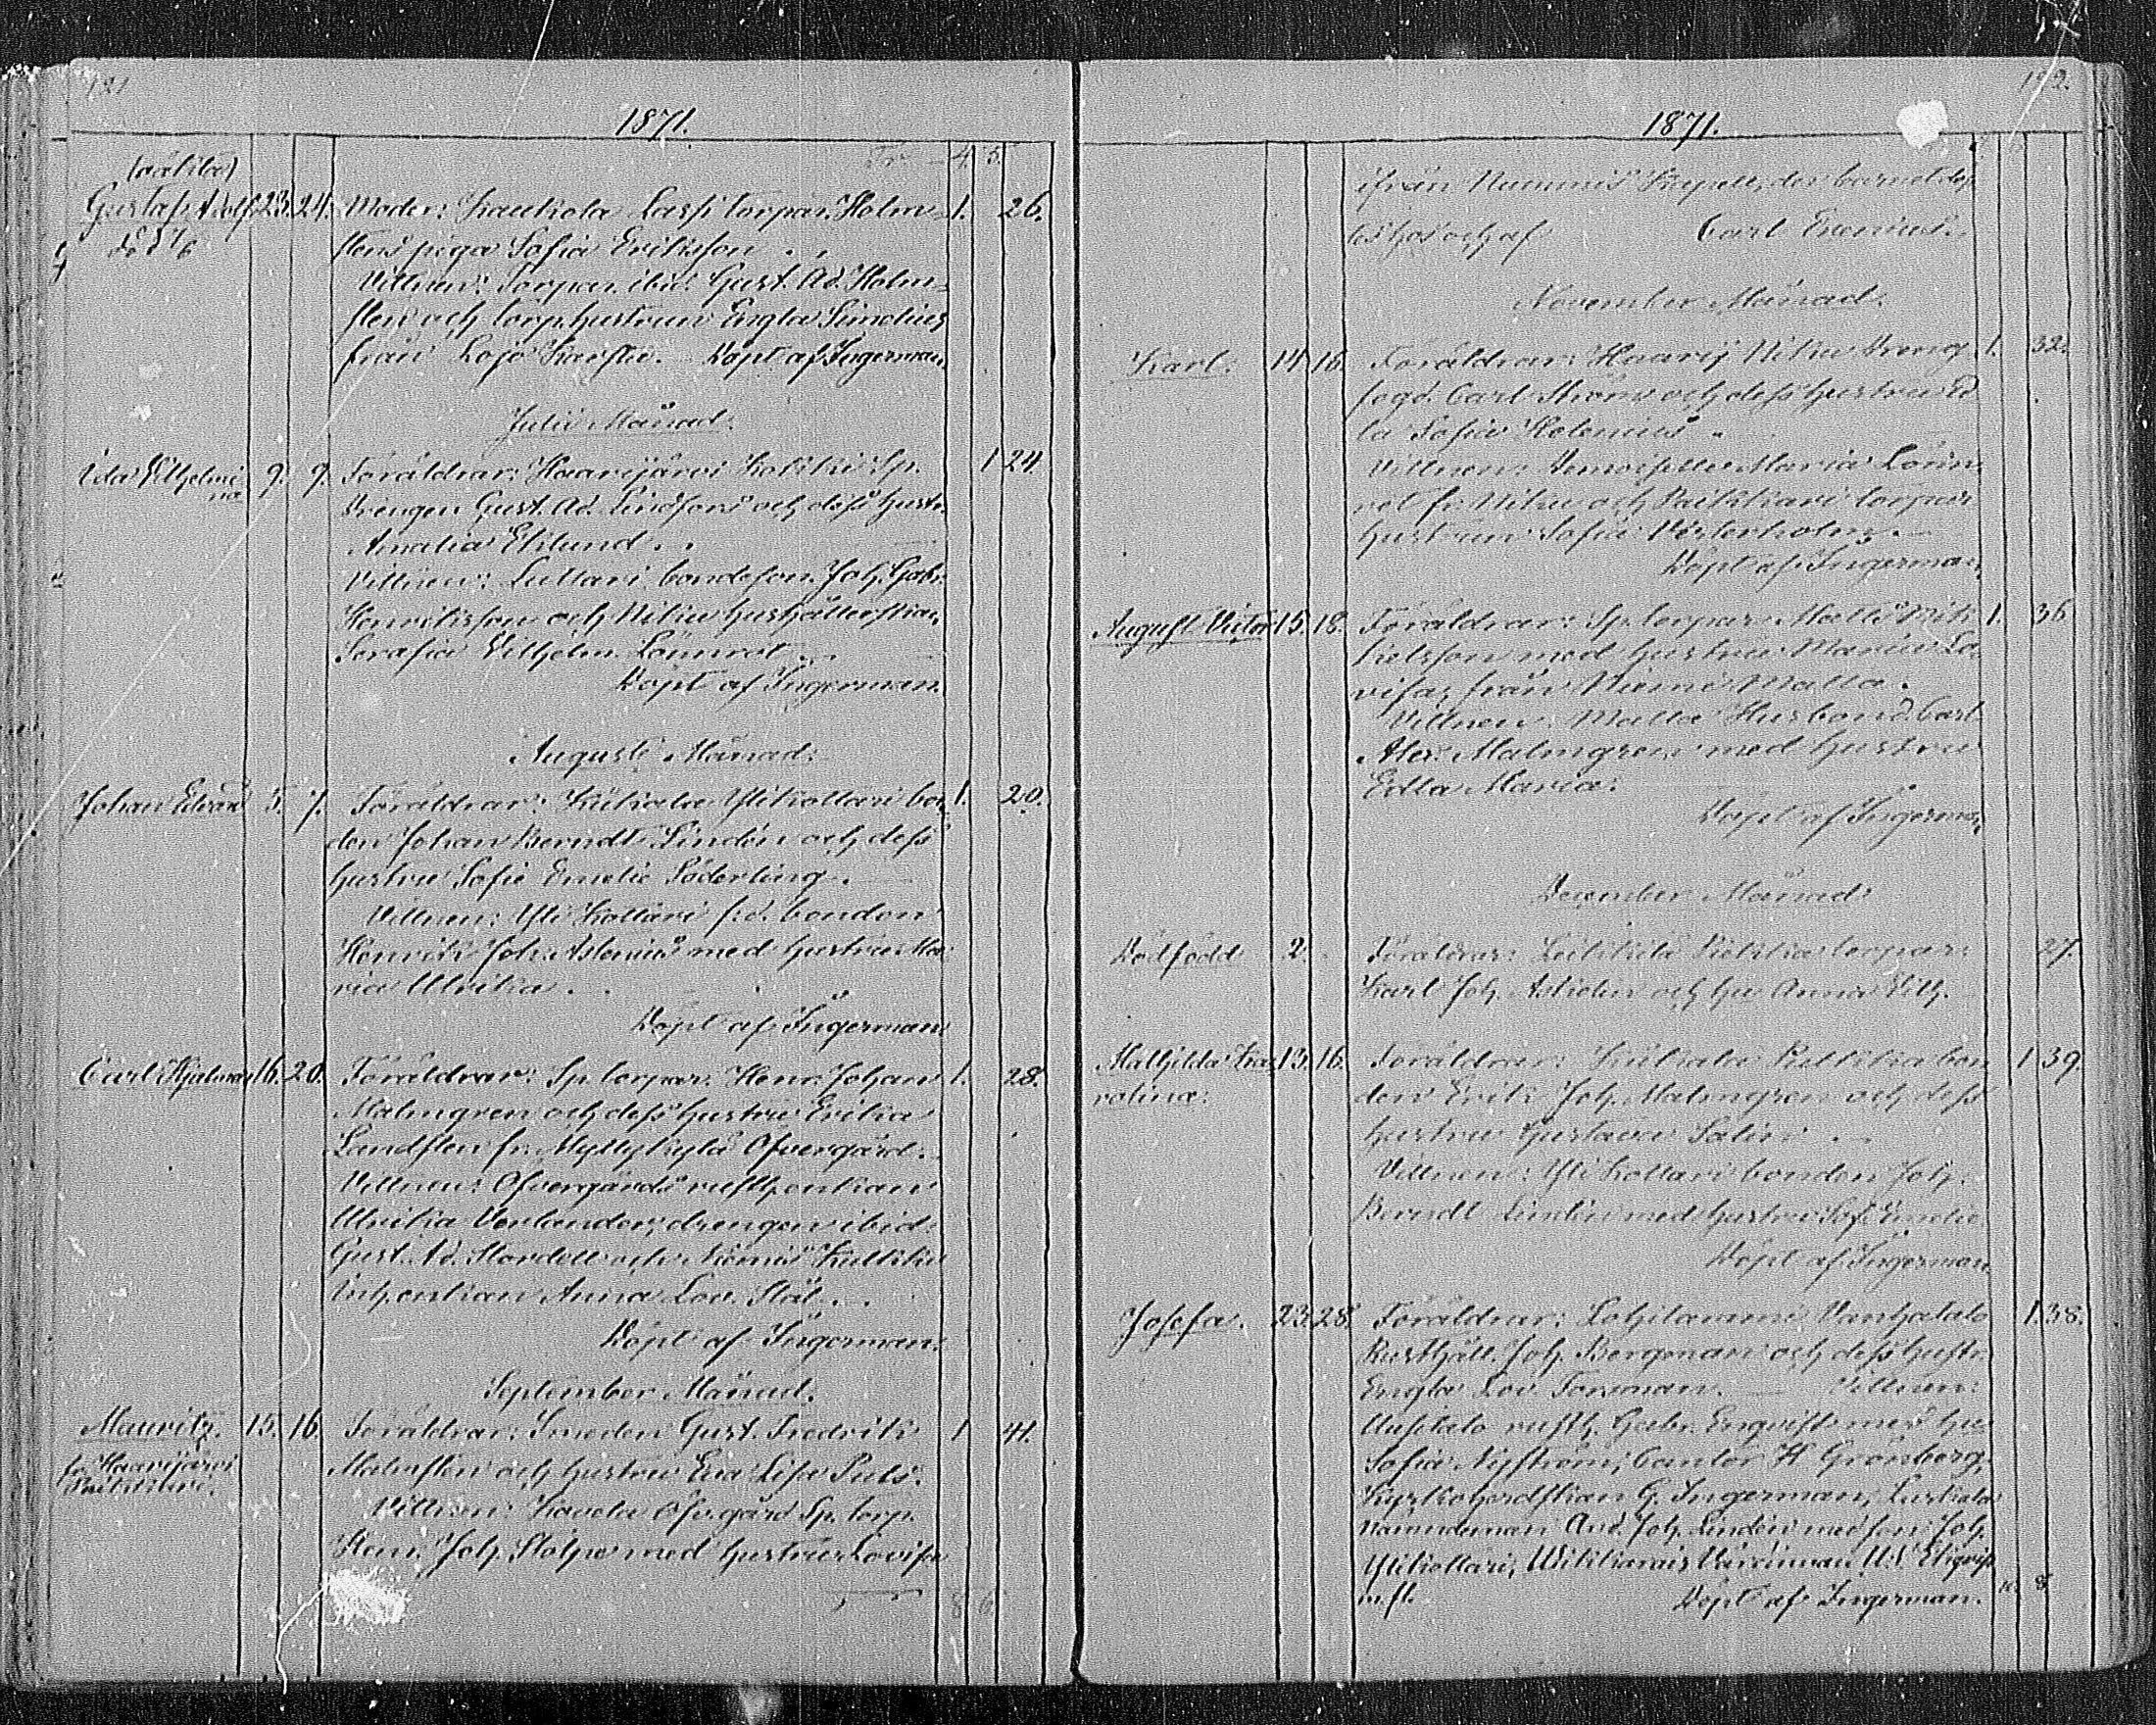 121
1871.
Tr 4. 5.
(oäkta)
Gustaf Adolf 23. 24. Moder: Kaukola Lassi torpar. Holm- 1. 26.
död 7/6 stens piga Sofia Eriksson . .
Vittnen: Torpar. ibid. Gust. Ad. Holm-
sten och torp.hustrun Engla Simelius
från Lojo Karstu. Döpt af Ingerman.
Julii Månad.
Ida Vilhelmi- 9. 9. Föräldrar: Haarijärvi Sp. 1 24
na Drengen Gust. Ad. Lindfors och dess hustr.
Amalia Eklund . .
Vittnen: Luttari bondeson. Joh. Gabr.
Henriksson och Niku hushållerskan
Serafia Vilhelm. Lönnrot . .
Döpt af Ingerman.
Augusti Månad:
Johan Edvard 5. 7. Föräldrar: Kiikala Ylikottari bon- 1. 20.
den Johan Berndt Lindén och dess
hustru Sofie Emelie Söderling .
Vittnen: Yli Kottari f.d. bonden
Henrik Joh. Astenius med hustru Ma-
ria Ulrika . .
Döpt af Ingerman.
Carl Hjalmar 16. 20. Föräldrar: Sp. torpar. Henr. Johan 1. 28.
Malmgren och dess hustru Erika
Landsten fr. Myllykylä Öfvergård.
Vittnen: Öfvergårds rusth.enkan
Ulrika Verlander, drengen ibid.
Gust. Ad. Nordell och Niemis
Inh.enkan Anna Lov. Stål . .
Döpt af Ingerman.
September Månad.
Mauritz. 15. 16. Föräldrar: Smeden Gust. Fredrik 1 41.
fr. Haarijärvi Malmsten och hustru Eva Lisa Puls.
Vittnen: Kavola Öfv.gård Sp. torp.
Henr. Joh. Stolpe med hustru Lovisa
8 6.
122.
1871.
ifrån Nummis Kapell, der barnet döp-
tes
Carl Erenius.
November Månad.
Karl. 14. 16. Föräldrar: Haarij. Niku Dreng 1. 32.
fogd. Carl Ström och dess hustru Ed-
la Sofia Helenius .
Vittnen: Demoiselle Maria Lönn-
rot fr. Niku och Paikkari torpar
hustrun Sofia Vesterholm.
Döpt af Ingerman.
August Victor 15. 18. Föräldrar: Sp. torpar. Matts Mik- 1. 36
kelsson med hustru Maria Lo-
visa, från Niemi Matta.
Vittnen: Matta Husbond. Carl
Alex. Malmgren med hustru
Edla Maria:
Döpt af Ingerman.
December Månad:
Dödfödd 2. Föräldrar: Leikkilä torpar: 27.
Karl Joh. och hu. Anna Vilh.
Mathilda Ka- 13. 16. Föräldrar: Kiikala bon- 1 39.
rolina: den Erik Joh. Malmgren och dess
hustru Gustava Salin . .
Vittnen: Yli Kottari bonden Joh.
Berndt Lindén med hustru Sof. Emelie
Döpt af Ingerman
Josefa. 23. 28. Föräldrar: Lohilammi Vanhatalo 1. 38.
Rusthåll. Joh. Bergman och dess hustr.
Engla Lov. Forsman. Vittnen:
Uusitalo rusth. Gabr. Enqvist med hu.
Sofia Nyström, Cantor H Grönberg,
Kyrkoherdskan G. Ingerman, Luskala
Nämndeman And. Joh. Lindén med son Joh.
Ylikottari,
m.fl. Döpt af Ingerman. 10. 8.